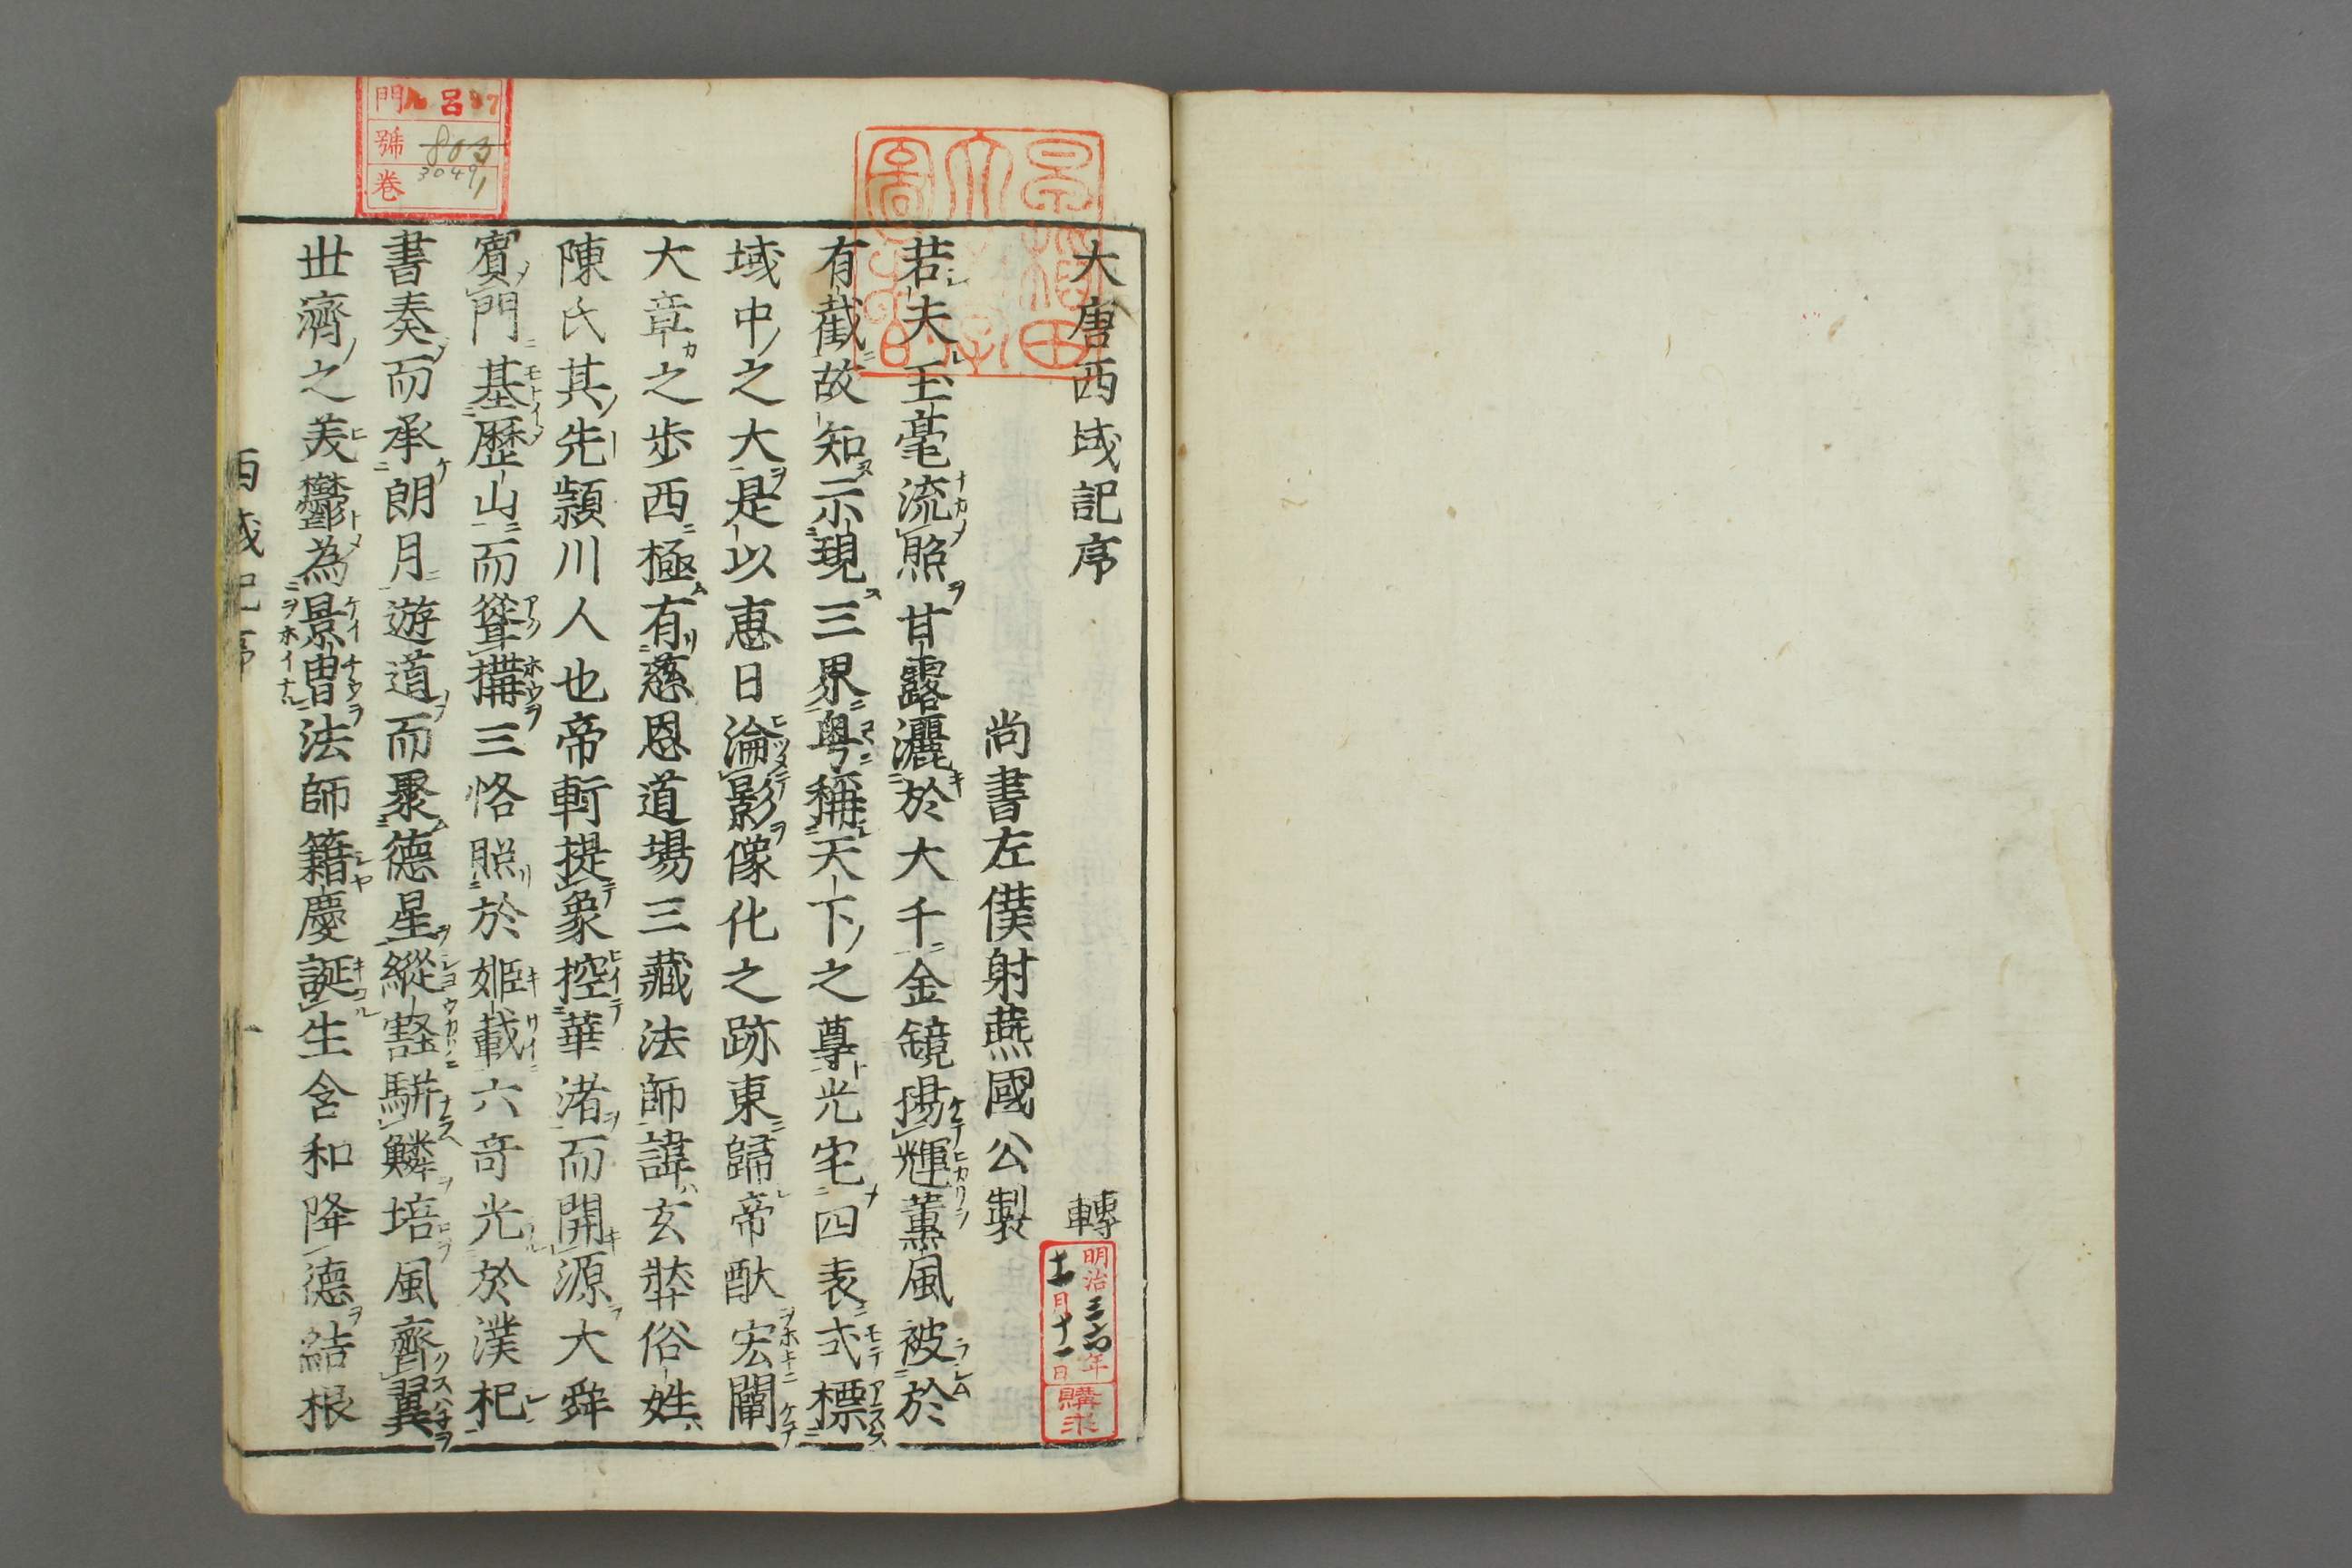 大唐西域記序 轉
尚書左僕射燕國公製
若夫玉毫流照甘露灑於大千金鏡揚輝薫風被於
有截故知示現三界粤稱天下之尊光宅四表式標
域中之大是以恵日淪影像化之跡東歸帝猷宏闡
大章之歩西極有慈恩道場三藏法師諱玄奘俗姓
陳氏其先頴川人也帝軒提象控華渚而開源大舜
賓門基歴山而聳搆三恪照於姫載六竒光於漢杞
書奏而承朗月遊道而聚徳星縱壑駢鱗培風齊翼
丗濟之美鬱為景冑法師籍慶誕生含和降徳結根
西域記序 一
門 呂
號 803 3049
卷 1
明治三六年
十二月十一日
購求